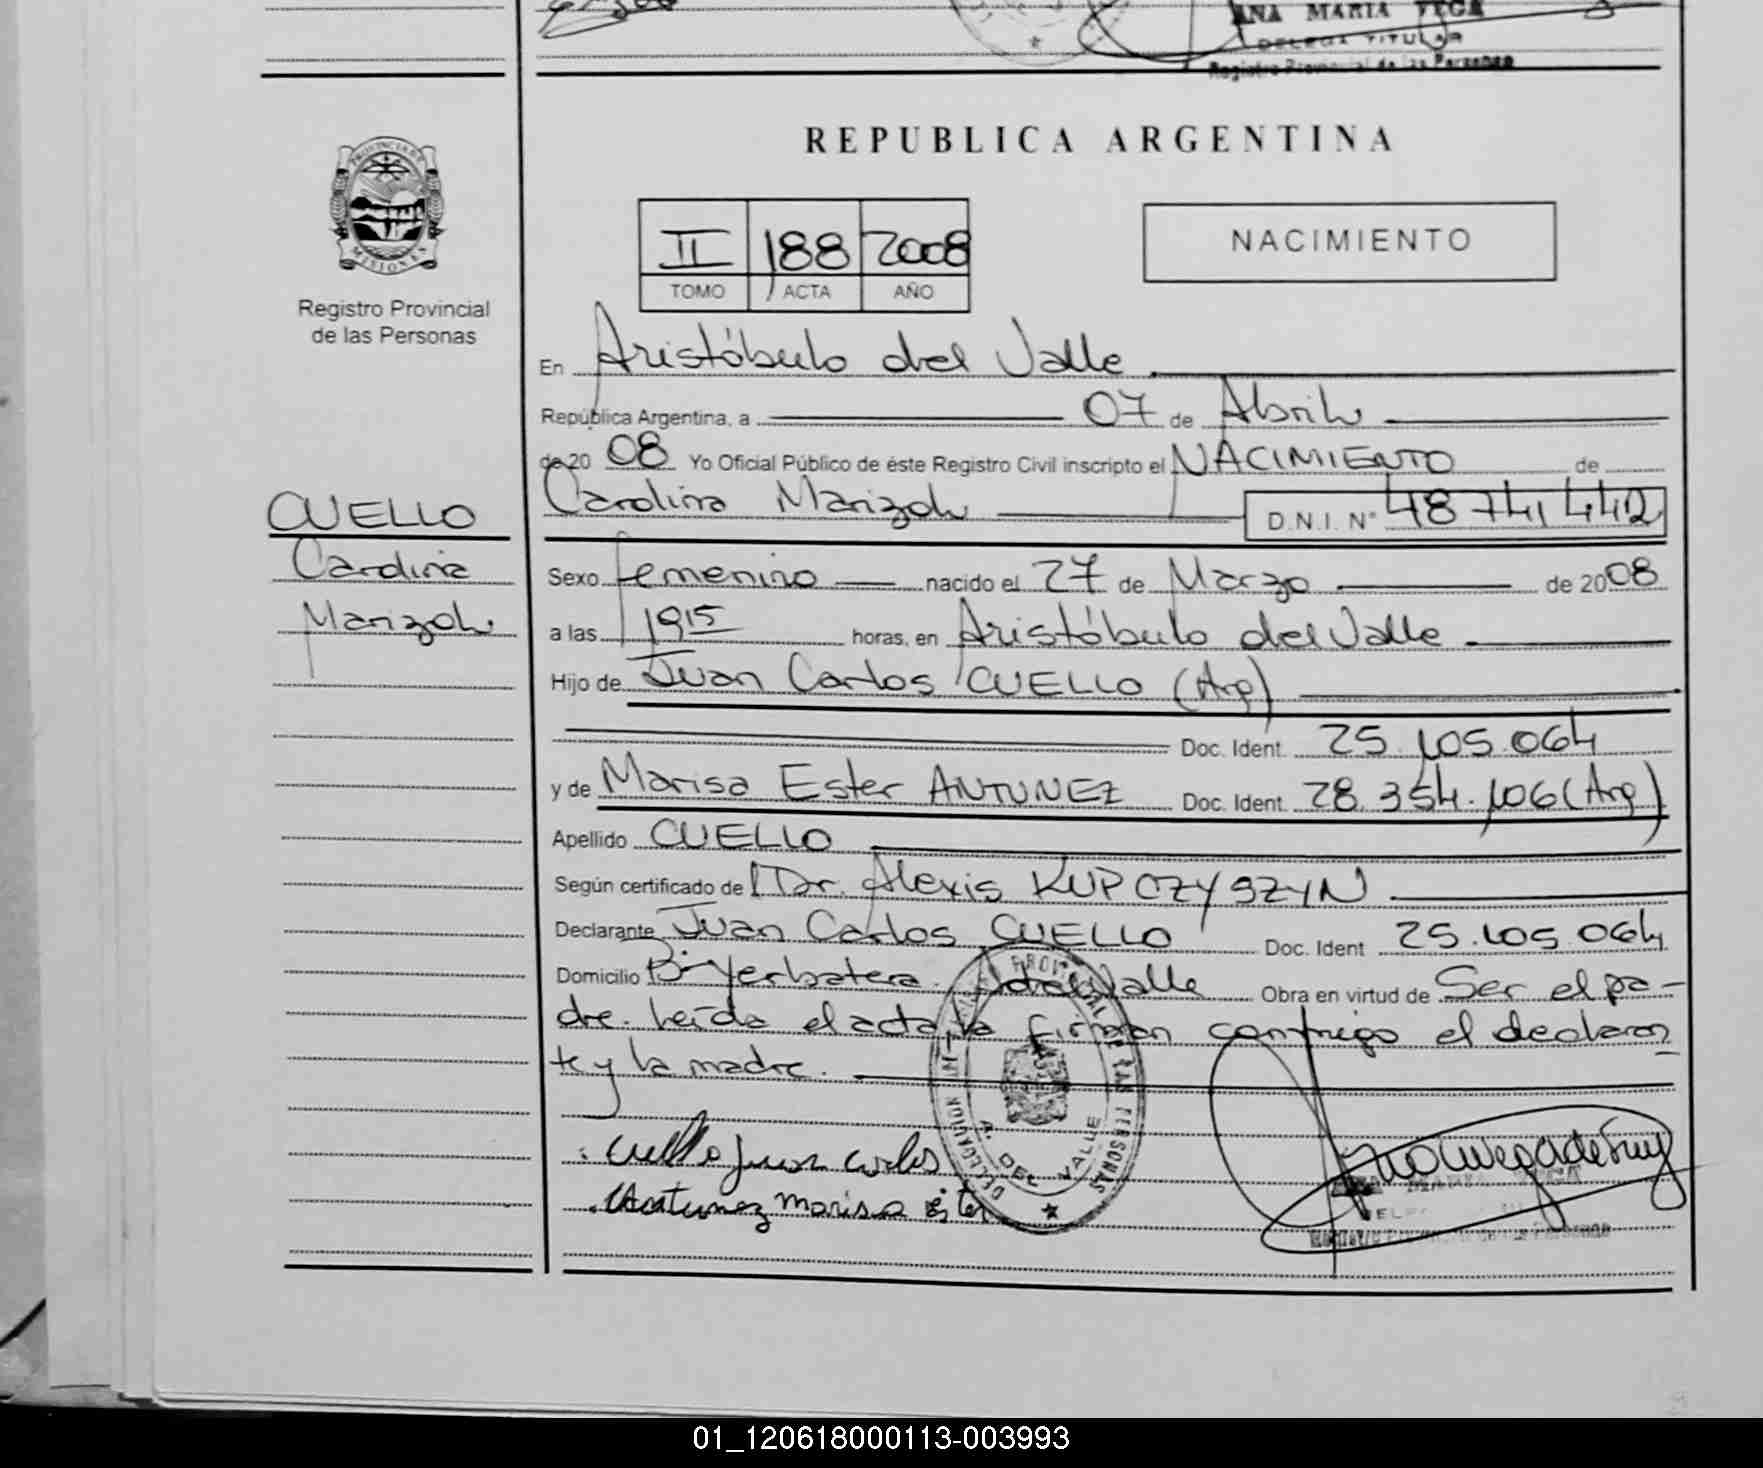 ANA MARIA VEGA
DELEGA TITULAR
Registro Provincial de las Personas
REPUBLICA ARGENTINA
PROVINCIA DE
MISIONES
Registro Provincial
de las Personas
II 188 2008
TOMO ACTA AÑO
NACIMIENTO
En Aristóbulo del Valle
República Argentina, a 07 de Abril
de 20 08 Yo Oficial Público de éste Registro Civil inscripto el NACIMIENTO de
Carolina Marizol D.N.I. N° 48 741 442
CUELLO
Carolina
Marizol
Sexo femenino nacido el 27 de Marzo de 2008
a las 1915 horas, en Aristóbulo del Valle
Hijo de Juan Carlos CUELLO (Arg)
Doc. Ident. 25.105.064
y de Marisa Ester ANTUNEZ Doc. Ident. 28.354.106 (Arg)
Apellido CUELLO
Según certificado de Dr. Alexis KUPCZYSZYN
Declarante Juan Carlos CUELLO Doc. Ident 25.105.064
Domicilio B° Yerbatera. A. del Valle Obra en virtud de Ser el pa-
dre. Leída el acta, la firman conmigo el declaran
te y la madre.
Cuello Juan Carlos
Antunez Marisa Ester
DELEGACION
A. DEL VALLE
01_120618000113-003993